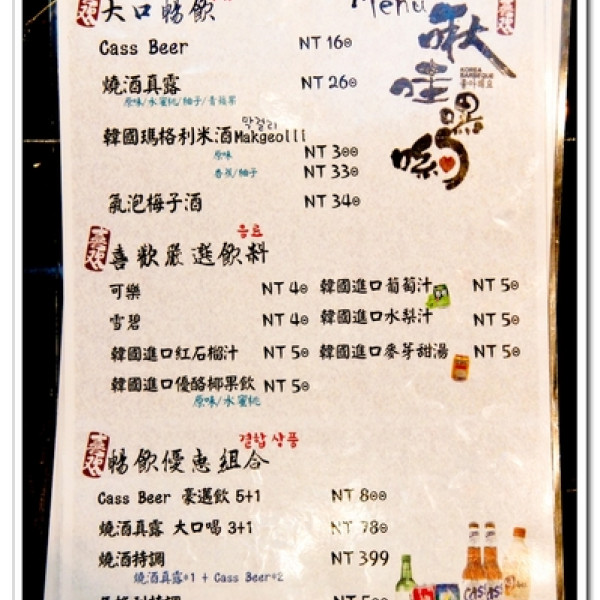 大口暢飲
Menu
Cass Beer NT 160
燒酒真露 NT 260
原味/水蜜桃/柚子/青蘋果
막걸리
韓國瑪格利米酒Makgeolli
原味 NT 300
香蕉/柚子 NT 330
氣泡梅子酒 NT 340
啾哇嘿喲
KOREA
BARBEQUE
좋아해요
음료
喜歡嚴選飲料
可樂 NT 40 韓國進口葡萄汁 NT 50
雪碧 NT 40 韓國進口水梨汁 NT 50
韓國進口紅石榴汁 NT 50 韓國進口麥芽甜湯 NT 50
韓國進口優酪椰果飲 NT 50
原味/水蜜桃
결합 상품
暢飲優惠組合
Cass Beer 豪邁飲 5+1 NT 800
燒酒真露 大口喝 3+1 NT 780
燒酒特調 NT 399
燒酒真露*1 + Cass Beer*2